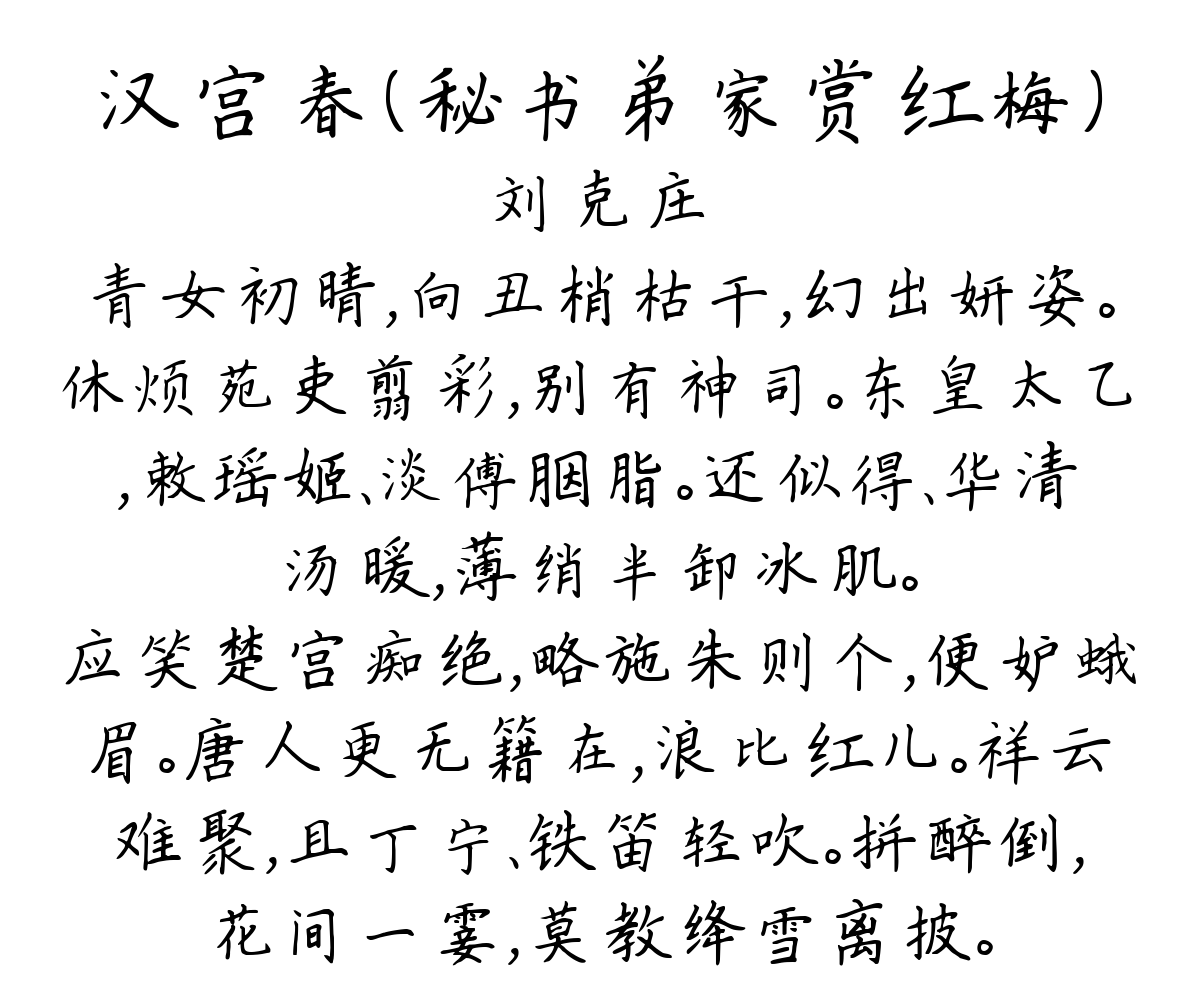 汉宫春(秘书弟家赏红梅)
刘克庄
青女初晴,向丑梢枯干,幻出妍姿。
休烦苑吏翦彩,别有神司。东皇太乙
,敕瑶姬、淡傅胭脂。还似得、华清
汤暖,薄绡半卸冰肌。
应笑楚宫痴绝,略施朱则个,便妒蛾
眉。唐人更无籍在,浪比红儿。祥云
难聚,且丁宁、铁笛轻吹。拼醉倒,
花间一霎,莫教绛雪离披。